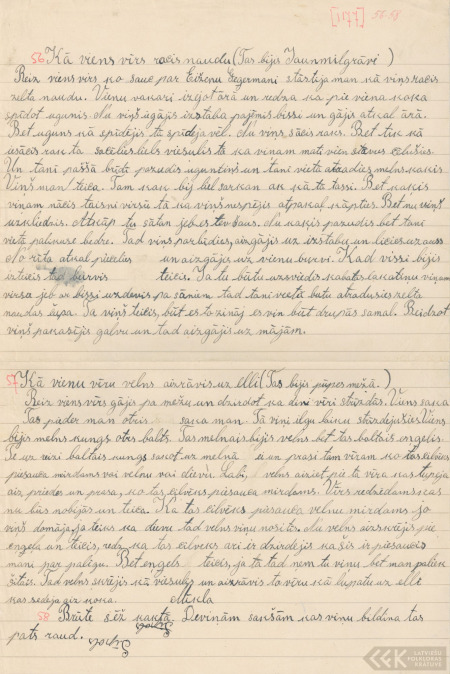 [1177] 56-58
56 Kā viens vīrs racis naudu (Tas bijis Jaunmilgrāvī)
Reiz viens vīrs ko sauc par Eižēnu Tegermani stāstija man kā viņš racis
zelta naudu. Vienu vakari izejot ārā un redza ka pie viena koka
spīdot ugunis. Nu viņš ugājis istabā paņēmis bissi un gājis atkal ārā.
Bet uguns kā spīdējis tā spīdeja vēl. Nu viņs sācis rakt. Bet tik kā
usācis rakt ta sacēlies liels viesulis tā ka viņam mati vien stāvus cēlušās.
Un tanī paššā brīdī pazudis uguntiņš un tanī vietā atradies melns kakis
Viņš man teica. Tam kak bij lūl sarkan ac kā tē tassi. Bet kakis
viņam nācis tais ni virsū tā ka viņš nespējis atpakaļ kāpties. Bet nu viņš
uzkliedzis. Atkāp tu sātan jeb es tev šaus. Nu kakis pazudis bet tanī
vietā palikuse bedre. Tad viņš parbīdies, aizgājis uz istabu un licies uz auss
No rīta atkal piecēlies un aizgājis uz vienu burvi. Kad vissi bijis
izteicis tad burvis teicis. Ja tu būtu uzsviedis kabatslakatinu viņam
virsū jeb ar bissi uzdevis pa sānim tad tanī vietā butu atradusies zelta
naudas lupa. Ja viņš teicis, būt es to zināj es vin būt drupās samal. Beidzot
viņš pakasījis galvu un tad aizgājis uz mājām.
57 Kā vienu vīru velns aizrāvis uz elli (Tas bijis pūpes mežā.)
Reiz viens vīrs gājis pa mežu un dzirdot ka divi vīri strīdās. Viens saka
Tas pieder man otris saka man. Tā viņi ilgu laiku strīdējušies Viens
bijis melns kungs otrs balts. Tas melnais bijis velns bet tas baltais engelis.
Te uz vizi baltais kungs sakot uz melnā ui un prasi tam vīram ko tas cilvēks
piesauca mirdams vai velnu vai dievu. Labi, velns aiziet pie tā vīra kas tupēja
aiz priedes un prasa, ko tas cilvēks piesauca mirdams. Vīrs redzēdams kas
nu būs nobijās un teica. Ka tas cilvēks piesauca velnu mirdams jo
viņš domāja, ja teiks ka dievu tad velns viņu nositīs. Nu velns aizskrējis pie
engeļa un teicis, redz, ka tas cilvēks arī ir dzirdējis ka šis ir piesaucis
mani par palīgu. Bet engels teicis, ja tā tad ņem tu viņu bet man paliek
šitais. Tad velns skrējis kā viesulis un aizrāvis to vīru kā lupatu uz elle
kas sēdēja aiz koka. Mikla
58 Brūte sēž kaktā. Deviņām sakšām kas viņu bildina tas
pats raud. Sīpols
LATVIEŠU
FOLKLORAS
KRĀTUVE